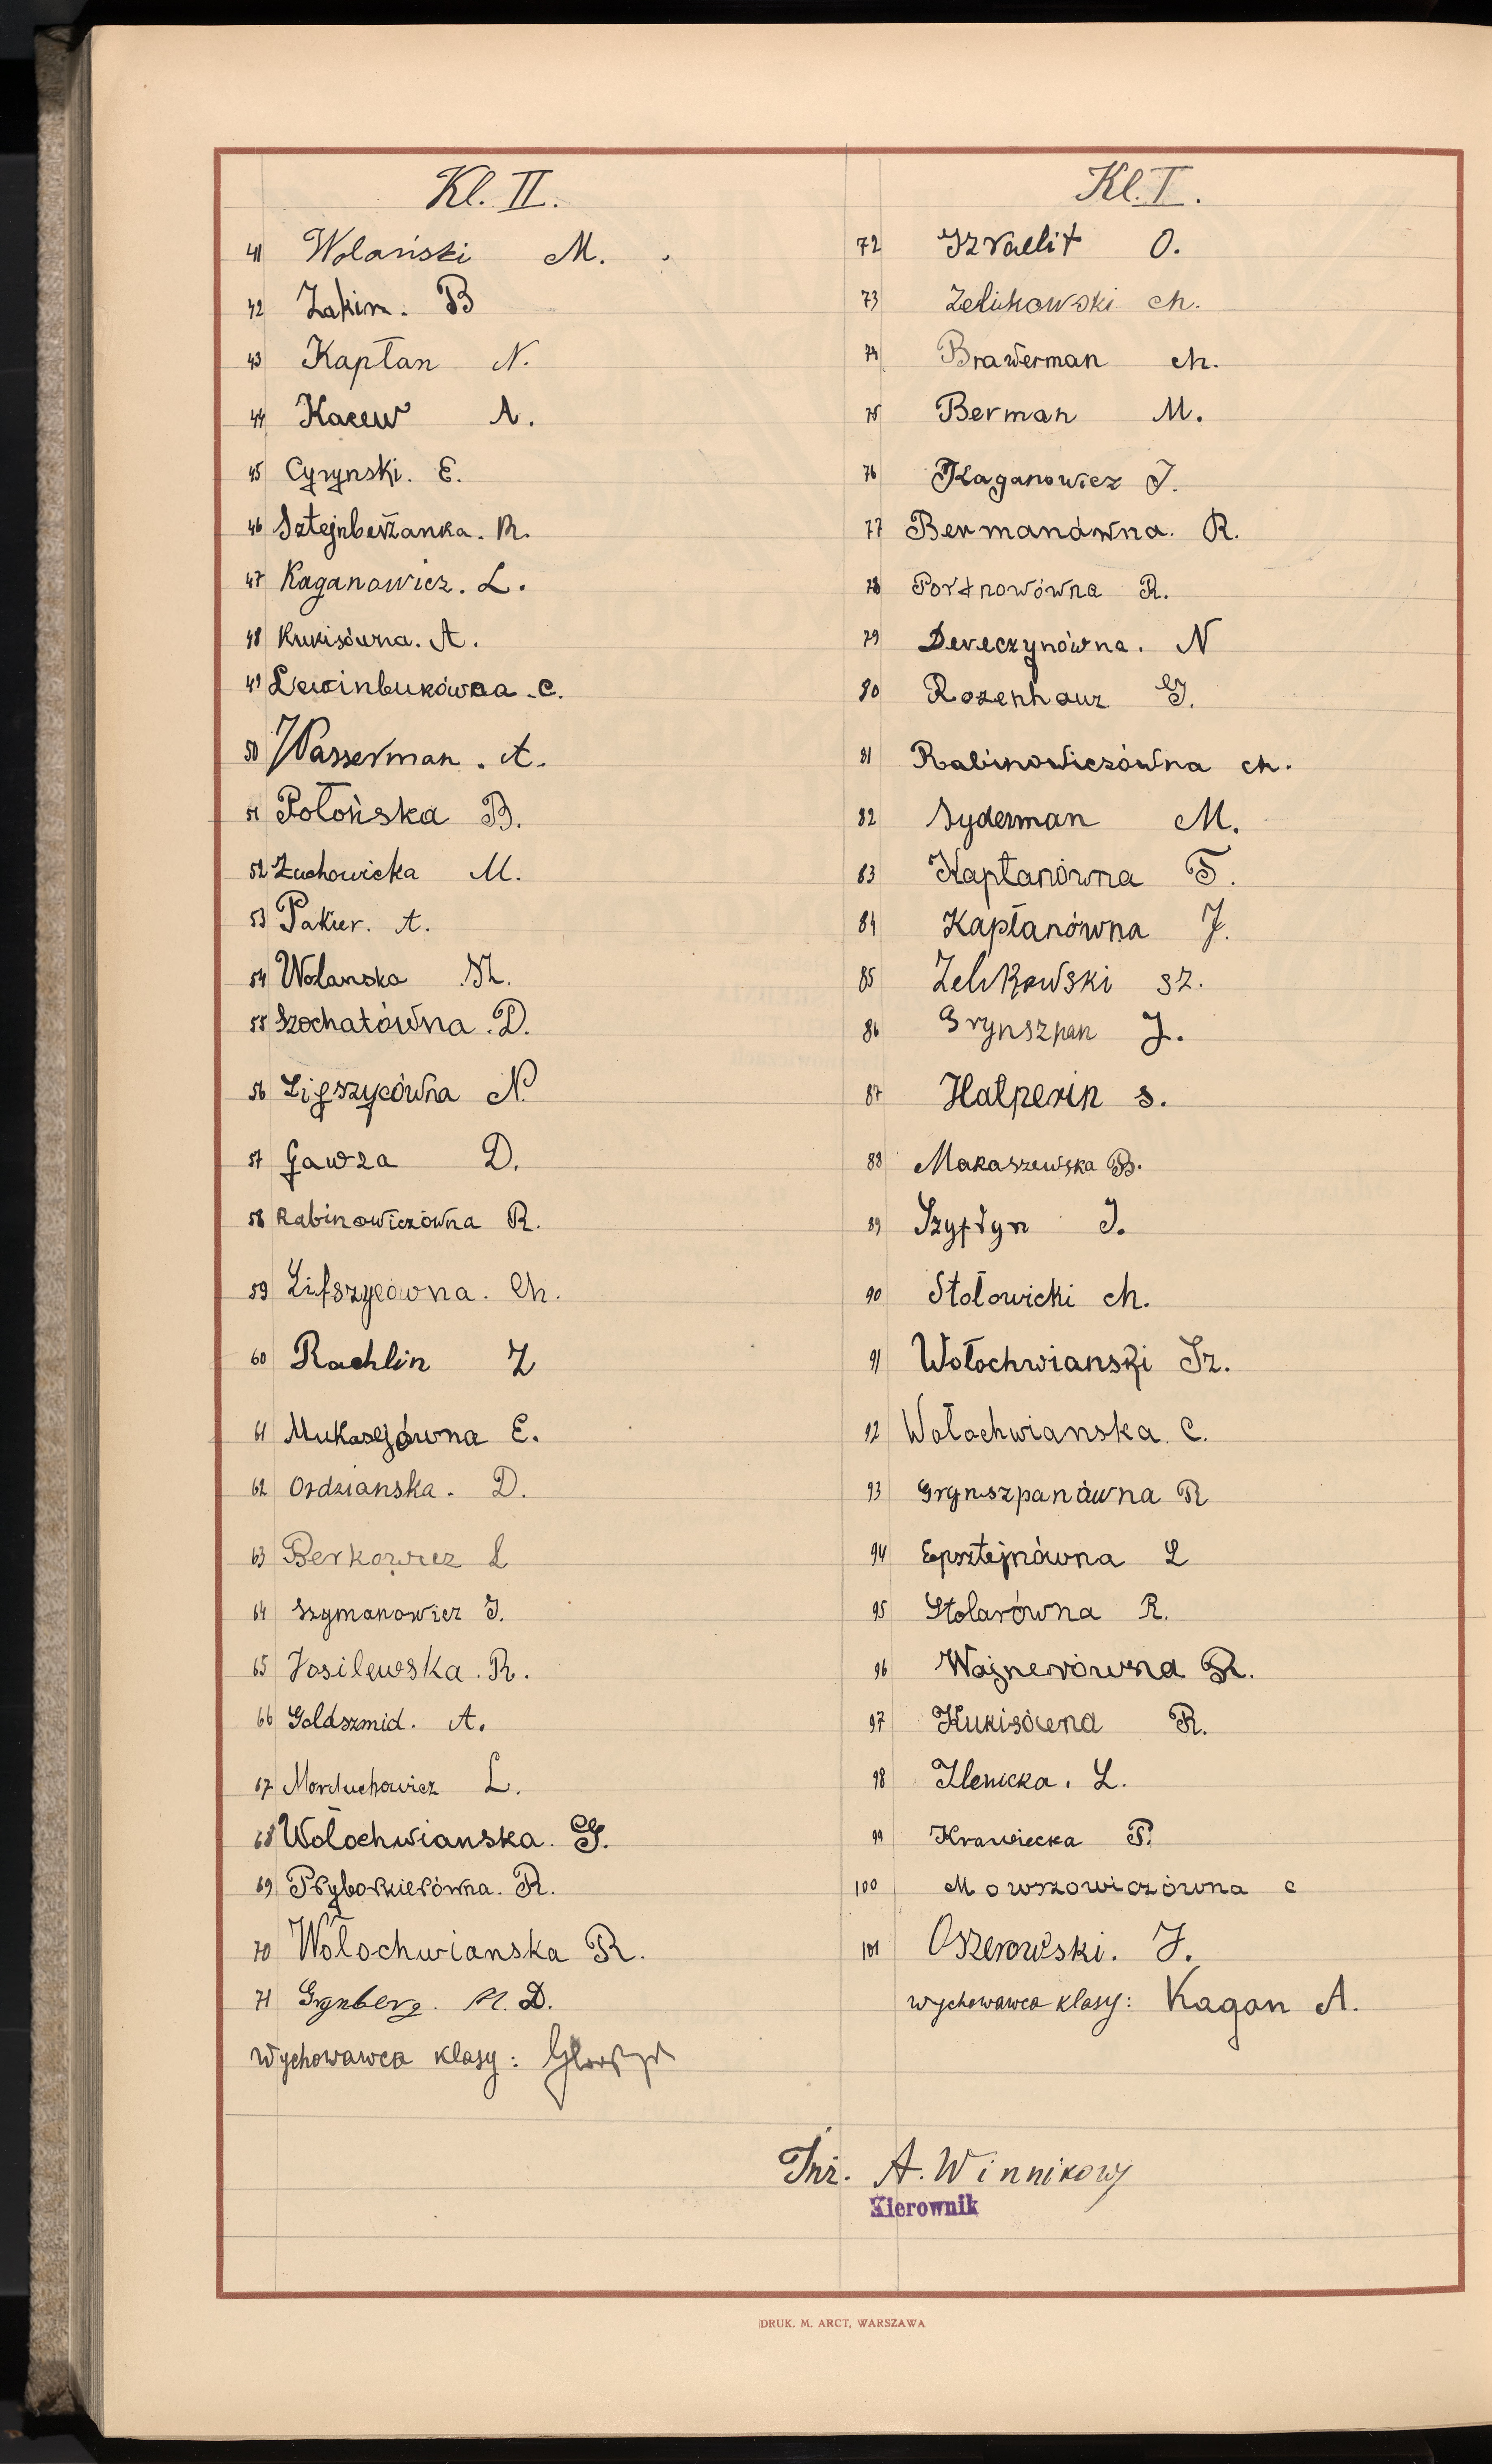 Kl. II.
41 Wolański M.
42 Zakim. B
43 Kapłan N.
44 Kacew A.
45 Cyrynski. E.
46 Sztejnberżanka. R.
47 Kaganowicz. L.
48 Kukisówna. A.
49 Lewinbukówna. C.
50 Wasserman. A.
51 Połońska B.
52 Żuchowicka M.
53 Pakier. A.
54 Wolanska Sz.
55 Szochatówna. D.
56 Lifszycówna N.
57 Gawza D.
58 Rabinowiczówna R.
59 Lifszycówna. Ch.
60 Rachlin Z
61 Mukasejówna E.
62 Ordzianska. D.
63 Berkowicz L
64 Szymanowicz J.
65 Wasilewska. R.
66 Goldszmid. A.
67 Morduchowicz L.
68 Wołochwianska. G.
69 Pryborkierówna. R.
70 Wołochwianska R.
71 Grynberg. M. D.
Wychowawca klasy:
Kl. I.
72 Izraelit O.
73 Zelikowski Ch.
74 Brawerman Ch.
75 Berman M.
76 Kaganowicz J.
77 Bermanówna. R.
78 Portnowówna R.
79 Dereczynówna. N
80 Rozenhauz G.
81 Rabinowiczówna Ch.
82 Syderman M.
83 Kapłanówna F.
84 Kapłanówna J.
85 Zelikowski Sz.
86 Grynszpan J.
87 Hałperin S.
88 Makaszewska B.
89 Szyftyn J.
90 Stołowicki Ch.
91 Wołochwianski Sz.
92 Wołochwianska. C.
93 Grynszpanówna R
94 Epsztejnówna L
95 Stolarówna R.
96 Wajnerówna R.
97 Kukisówna R.
98 Ilenicka. L.
99 Krawiecka P.
100 Mowszowiczówna C
101 Oszerowski. J.
wychowawca klasy: Kagan A.
Inż. A. Winnikow
Kierownik
DRUK. M. ARCT, WARSZAWA